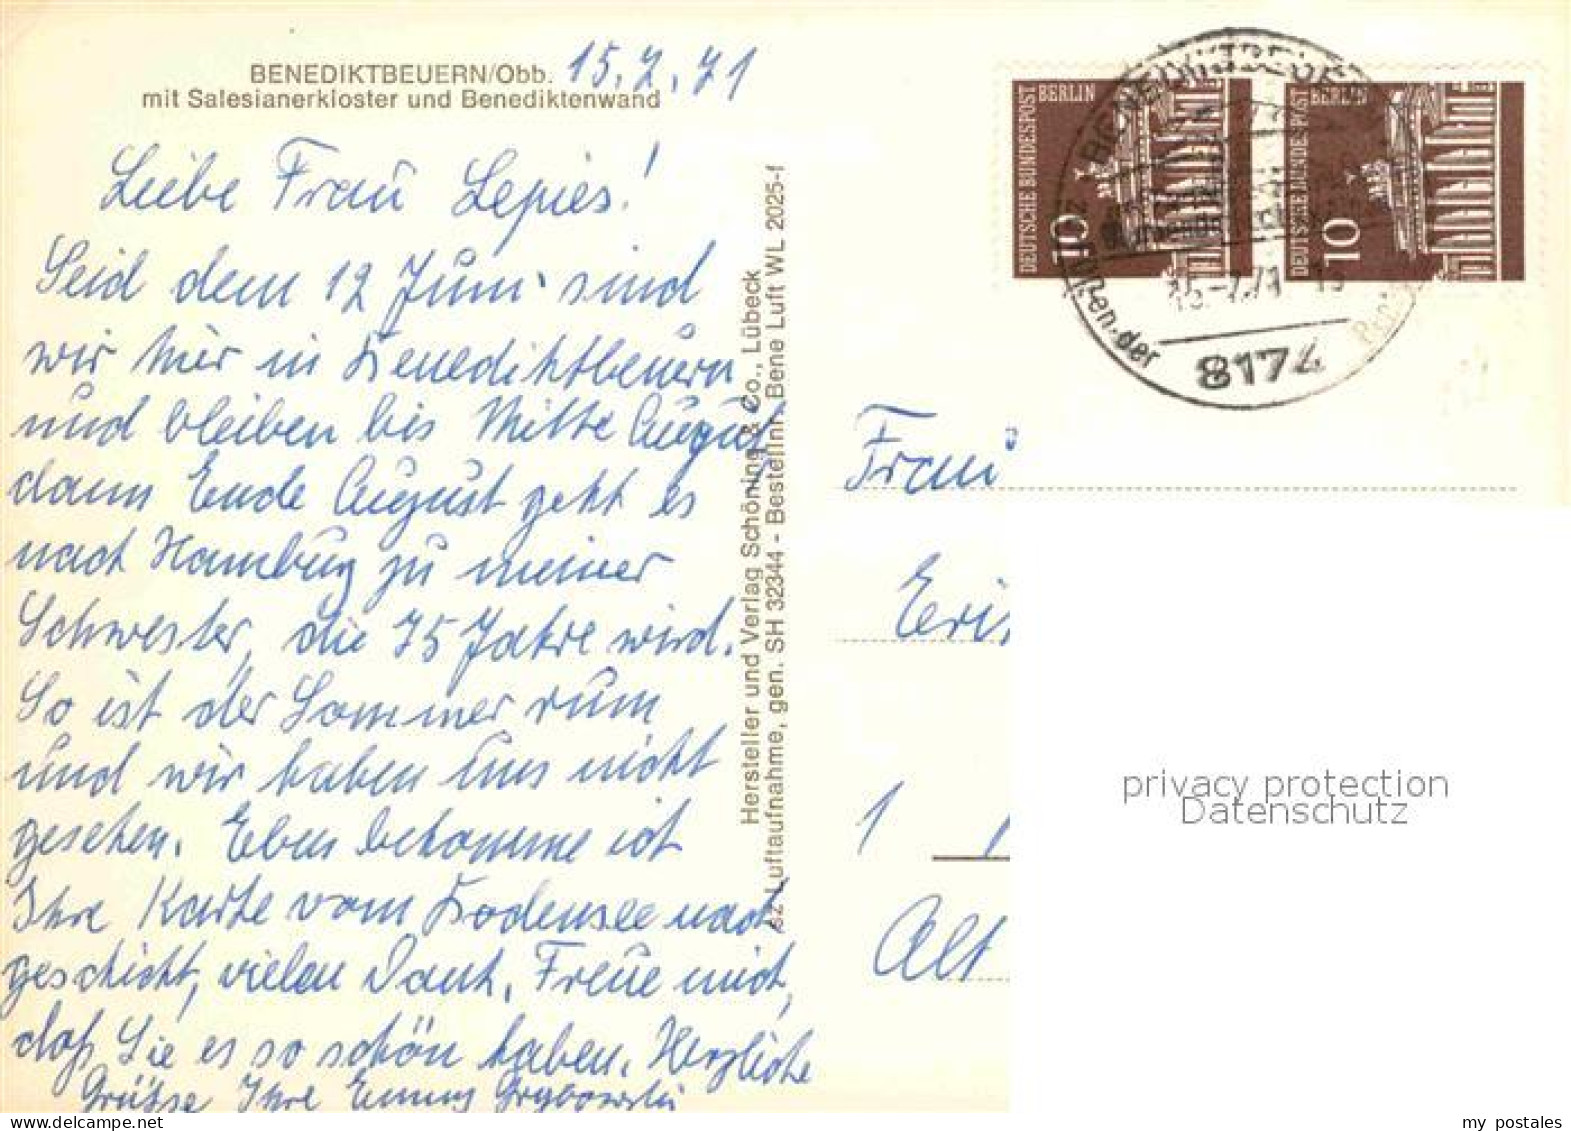 BENEDIKTBEUERN/Obb. 15.7.71
mit Salesianerkloster und Benediktenwand
Liebe Frau Lepies!
Seid dem 12 Juni sind
wir hier in Benediktbeuern
und bleiben bis Mitte August
dann Ende August geht es
nach Hamburg zu meiner
Schwester, die 75 Jahre wird.
So ist der Sommer rum
und wir haben uns nicht
gesehen. Eben bekomme ich
Ihre Karte vom Bodensee nach
geschickt, vielen Dank. Freue mich,
daß Sie es so schön haben. Herzliche
Grüsse Ihre Emmy Grybowski
Hersteller und Verlag Schöning & Co., Lübeck
Luftaufnahme, gen. SH 32344 - Bestellnr. Bene Luft WL 2025-f
DEUTSCHE BUNDESPOST
BERLIN
10
DEUTSCHE BUNDESPOST
BERLIN
10
BENEDIKTBEUE
8174
Frau
Eri
1
Alt
privacy protection
Datenschutz
www.delcampe.net
my_postales